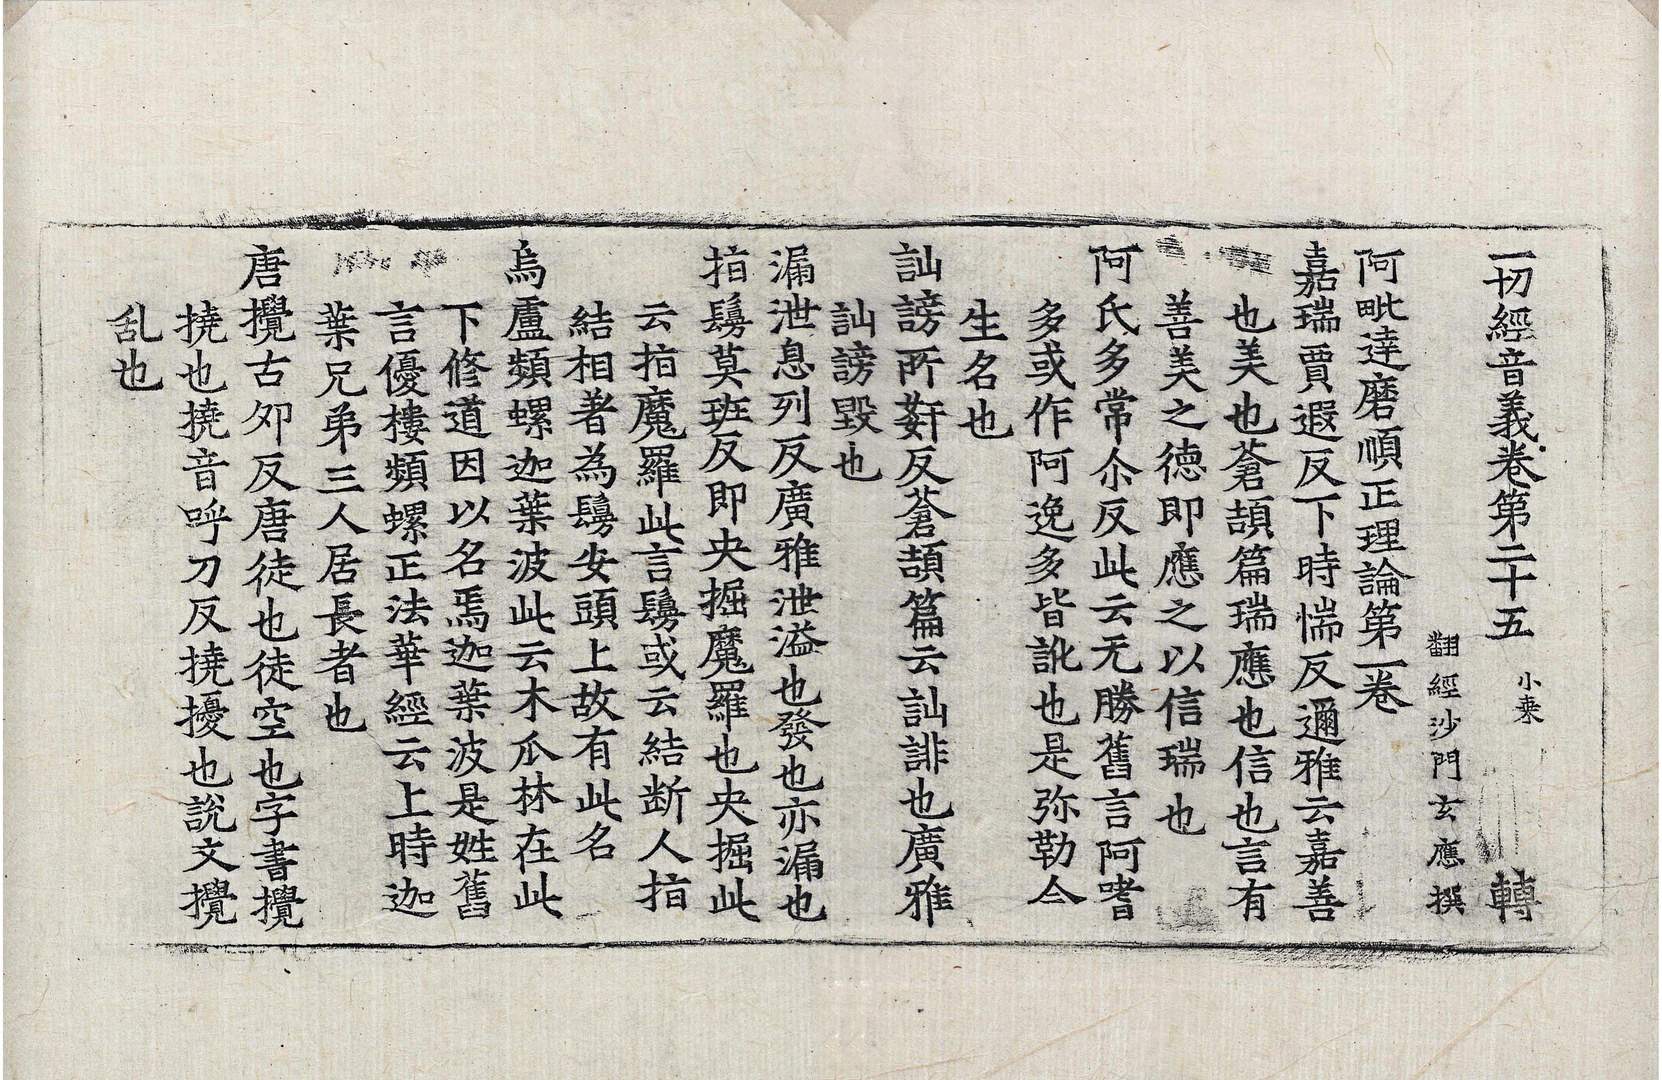 一切經音義卷第二十五 小乘 轉
翻經沙門玄應撰
阿毗達磨順正理論第一卷
嘉瑞賈遐反下時惴反邇雅云嘉善
也美也蒼頡篇瑞應也信也言有
善美之德即應之以信瑞也
阿氏多常尒反此云无勝舊言阿嗜
多或作阿逸多皆訛也是弥勒今
生名也
訕謗所姧反蒼頡篇云訕誹也廣雅
訕謗毀也
漏泄息列反廣雅泄溢也發也亦漏也
指鬘莫班反即央掘魔羅也央掘此
云指魔羅此言鬘或云結断人指
結相著為鬘安頭上故有此名
烏盧頻螺迦葉波此云木瓜林在此
下修道因以名焉迦葉波是姓舊
言優樓頻螺正法華經云上時迦
葉兄弟三人居長者也
唐攪古夘反唐徒也徒空也字書攪
撓也撓音呼刀反撓擾也說文攪
乱也